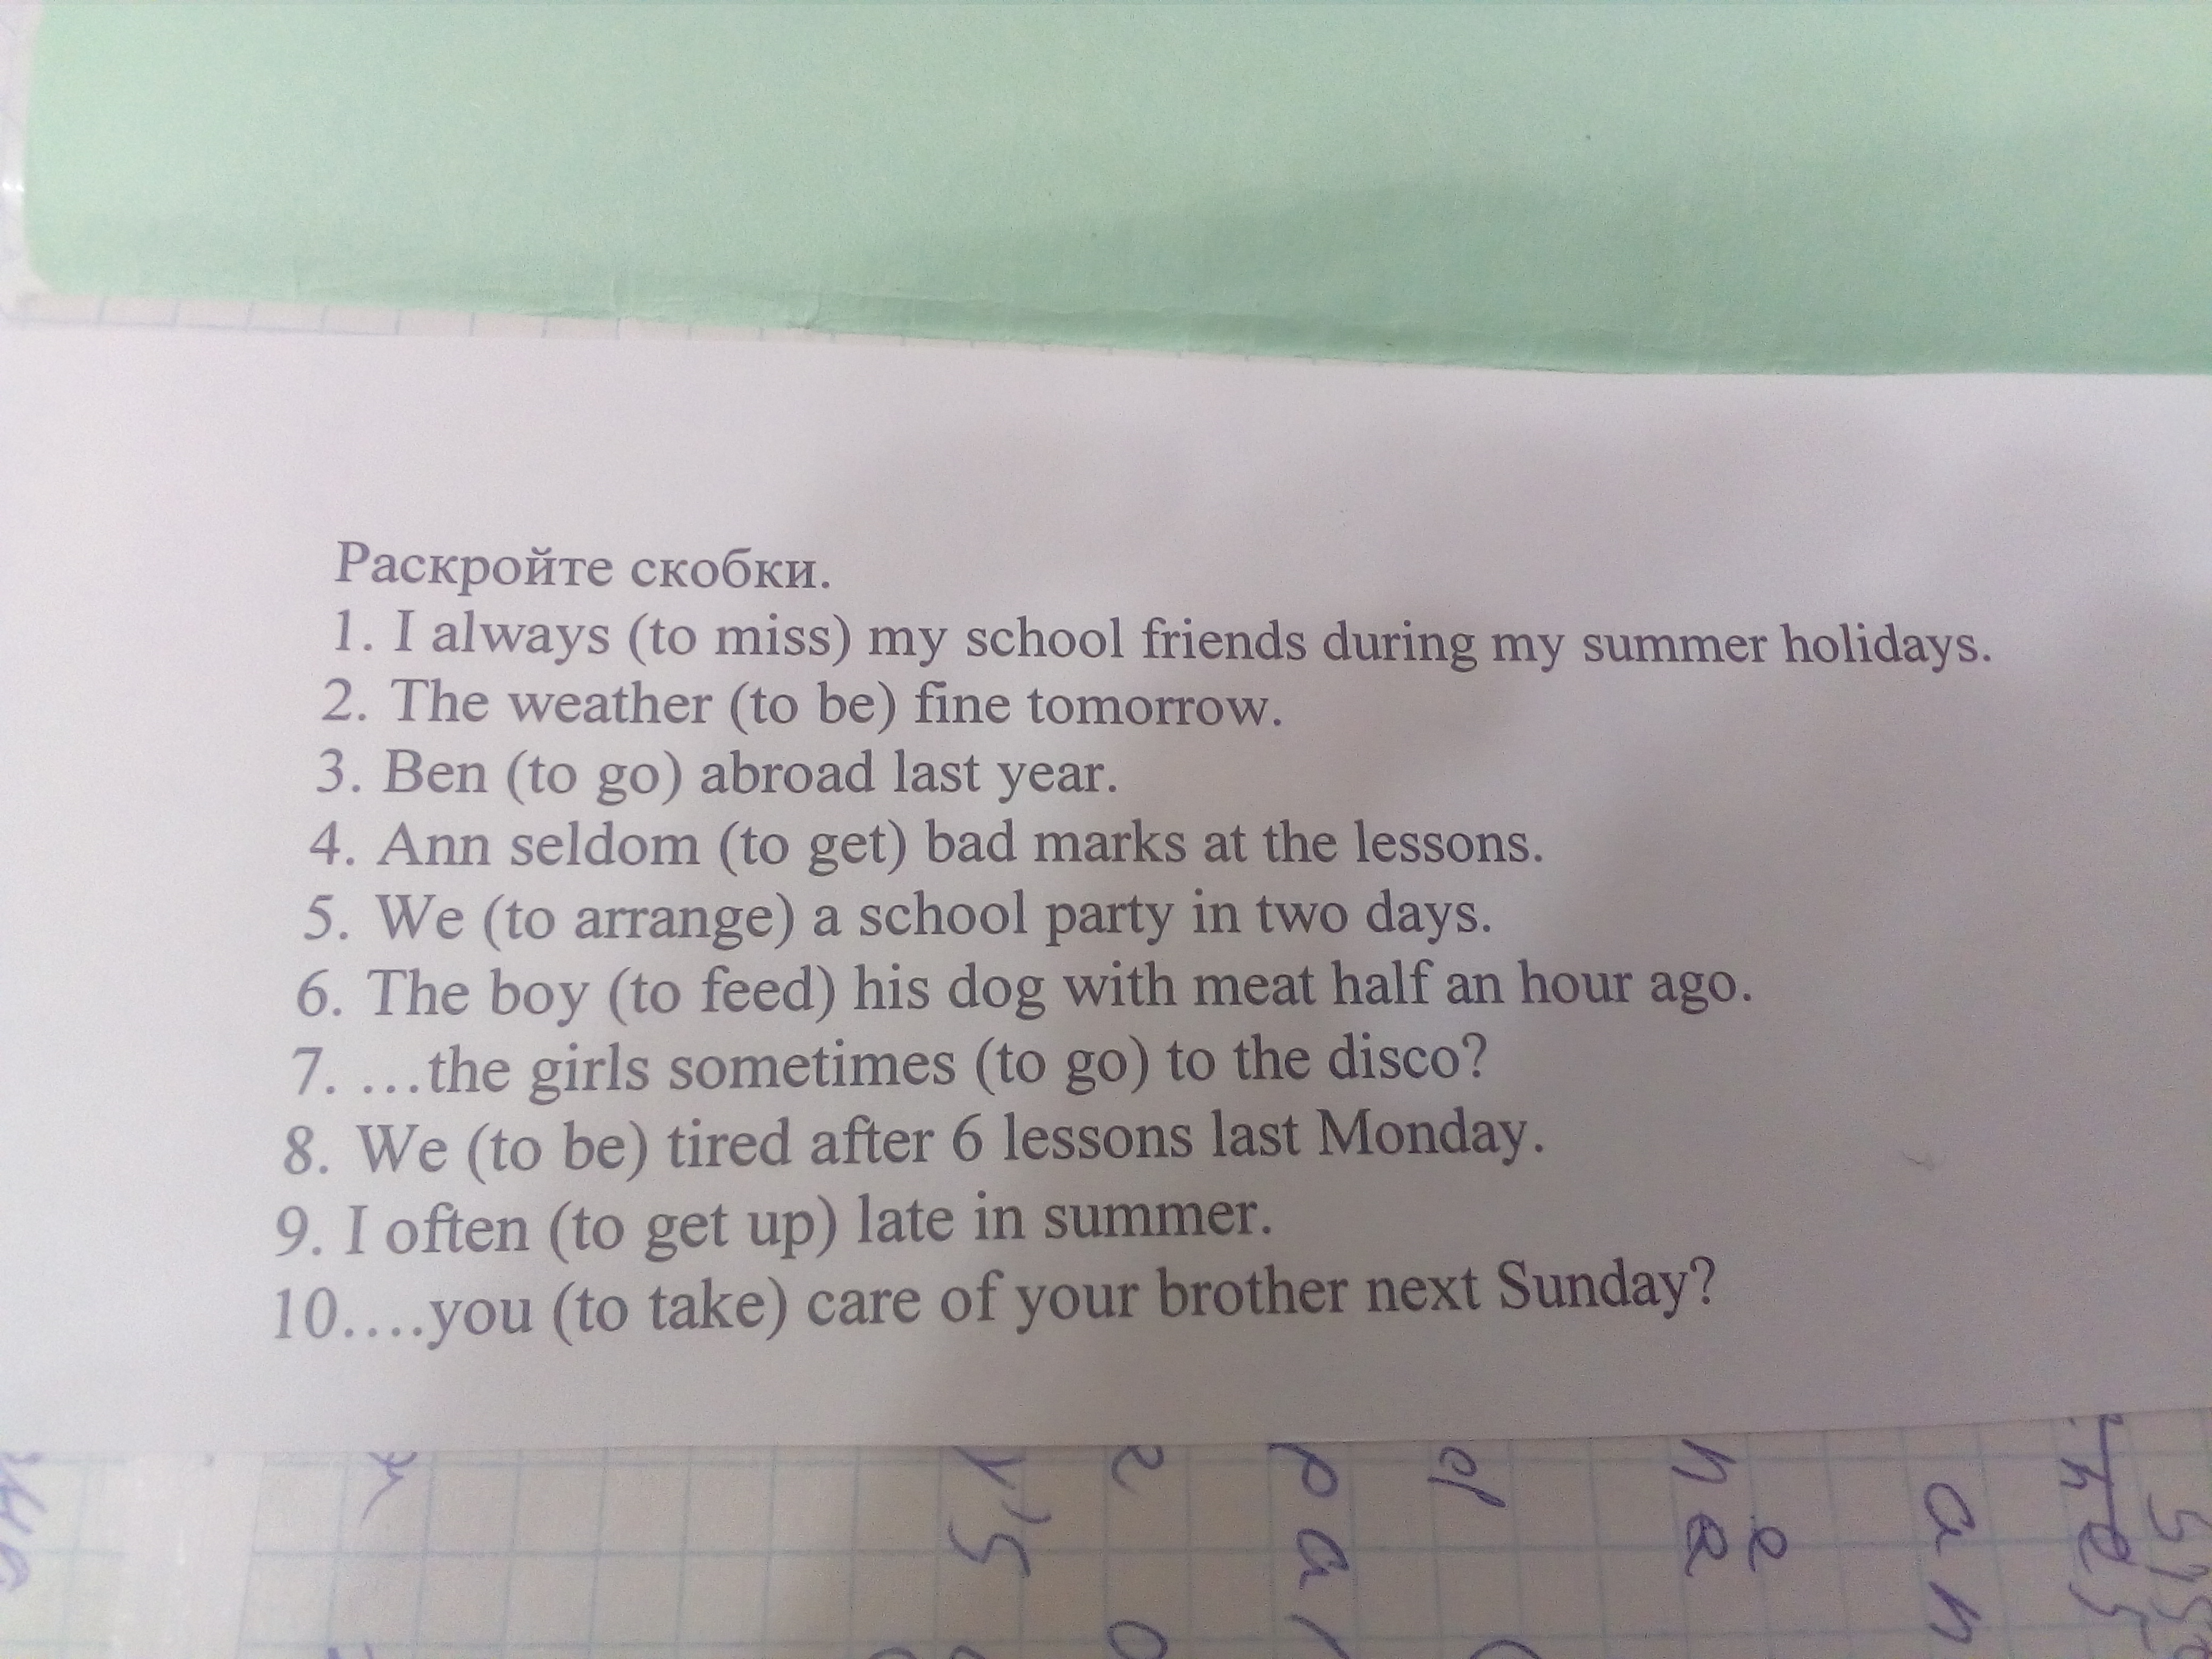 Раскройте скобки.
1. I always (to miss) my school friends during my summer holidays.
2. The weather (to be) fine tomorrow.
3. Ben (to go) abroad last year.
4. Ann seldom (to get) bad marks at the lessons.
5. We (to arrange) a school party in two days.
6. The boy (to feed) his dog with meat half an hour ago.
7. …the girls sometimes (to go) to the disco?
8. We (to be) tired after 6 lessons last Monday.
9. I often (to get up) late in summer.
10.…you (to take) care of your brother next Sunday?